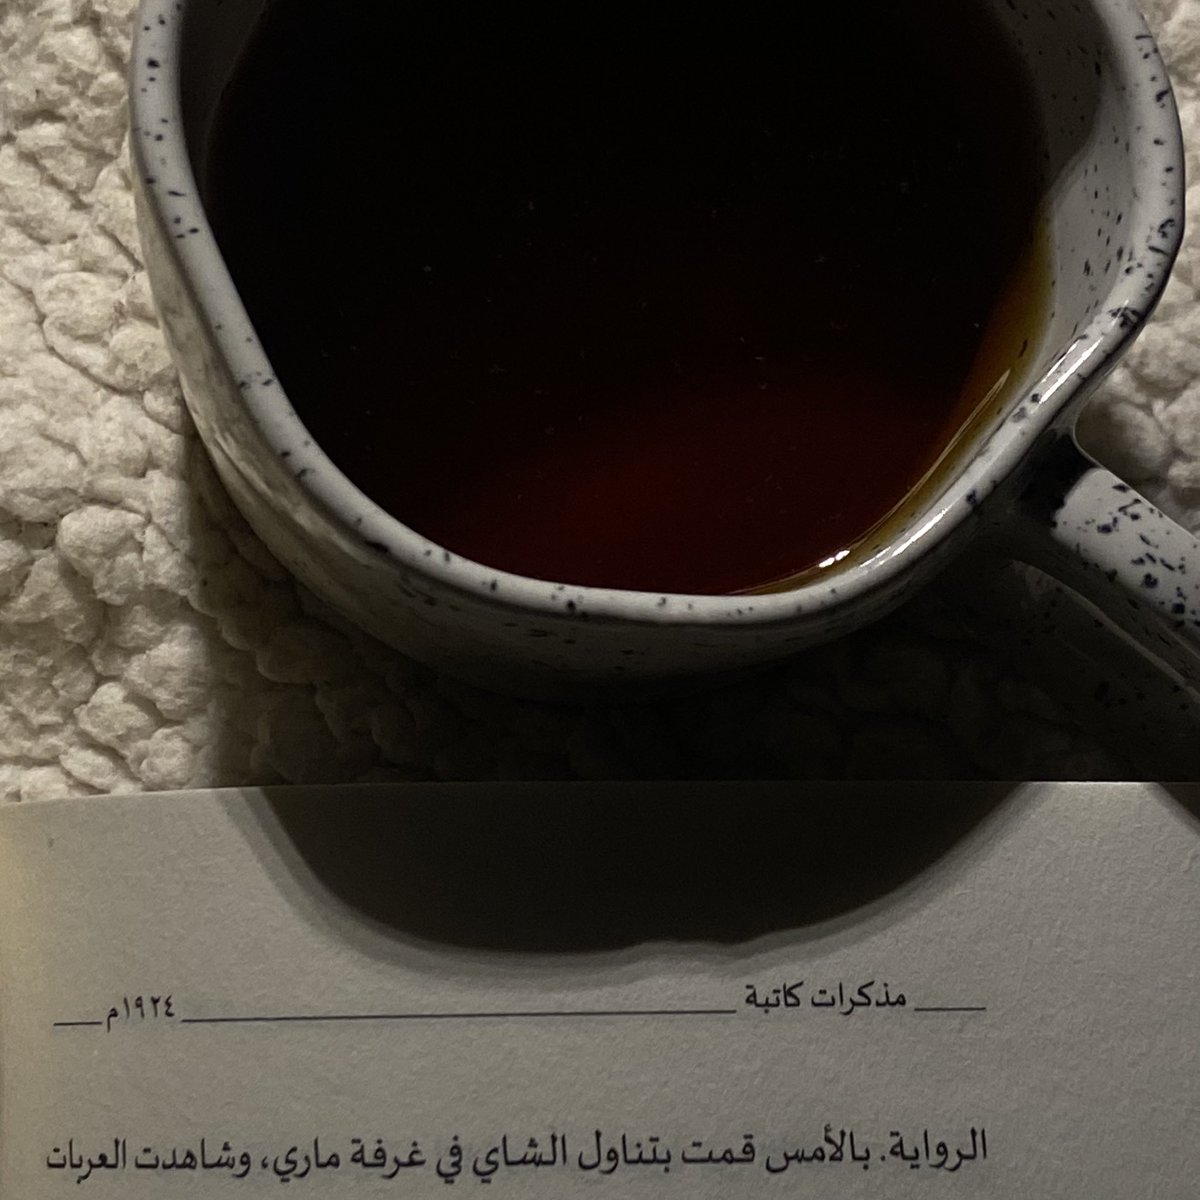 مذكرات كاتبة ١٩٢٤م
الرواية. بالأمس قمت بتناول الشاي في غرفة ماري، وشاهدت العربات